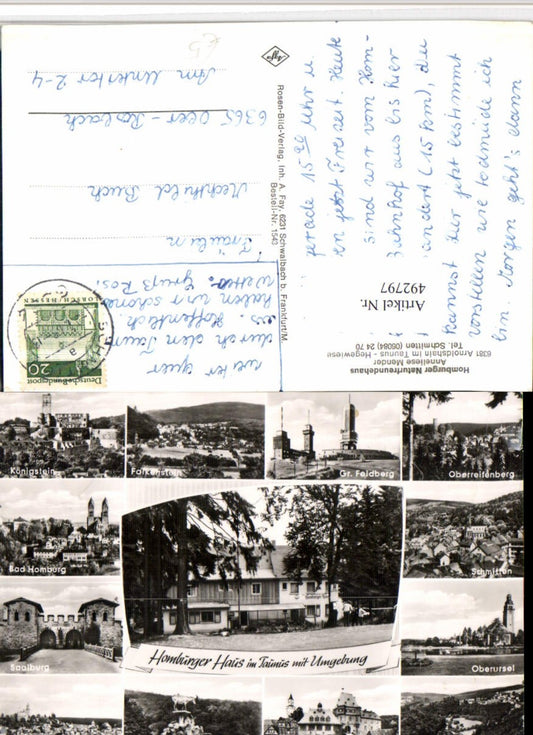 gerade 15 00 Uhr u.
en jetzt Freizeit. Heute
sind wir vom Hom-
aus bis hier
(15 km), du
kannst dir jetzt bestimmt
vorstellen wie todmüde ich
bin Morgen geht's dann
weiter quer
durch den Taun
es. Hoffentlich
haben wir schönes
Wetter. Gruß Rosi
Fräulein
Mechthild Buch
6365 Ober-Rosbach
Am Unkertor 2-4
Agfa
Rosen-Bild-Verlag, Inh. A. Fay, 6231 Schwalbach b. Frankfurt/M.
Bestell-Nr. 1543
Artikel Nr.
492797
Homburger Naturfreundehaus
Anneliese Mender
6381 Arnoldshain im Taunus - Hegewiese
Tel. Schmitten (06084) 24 70
LORSCH/HESSEN
20
Deutsche Bundespost
Königstein
Falkenstein
Gr. Feldberg
Oberreifenberg
Bad Homburg
Schmitten
Saalburg
Homburger Haus im Taunus mit Umgebung
Oberursel